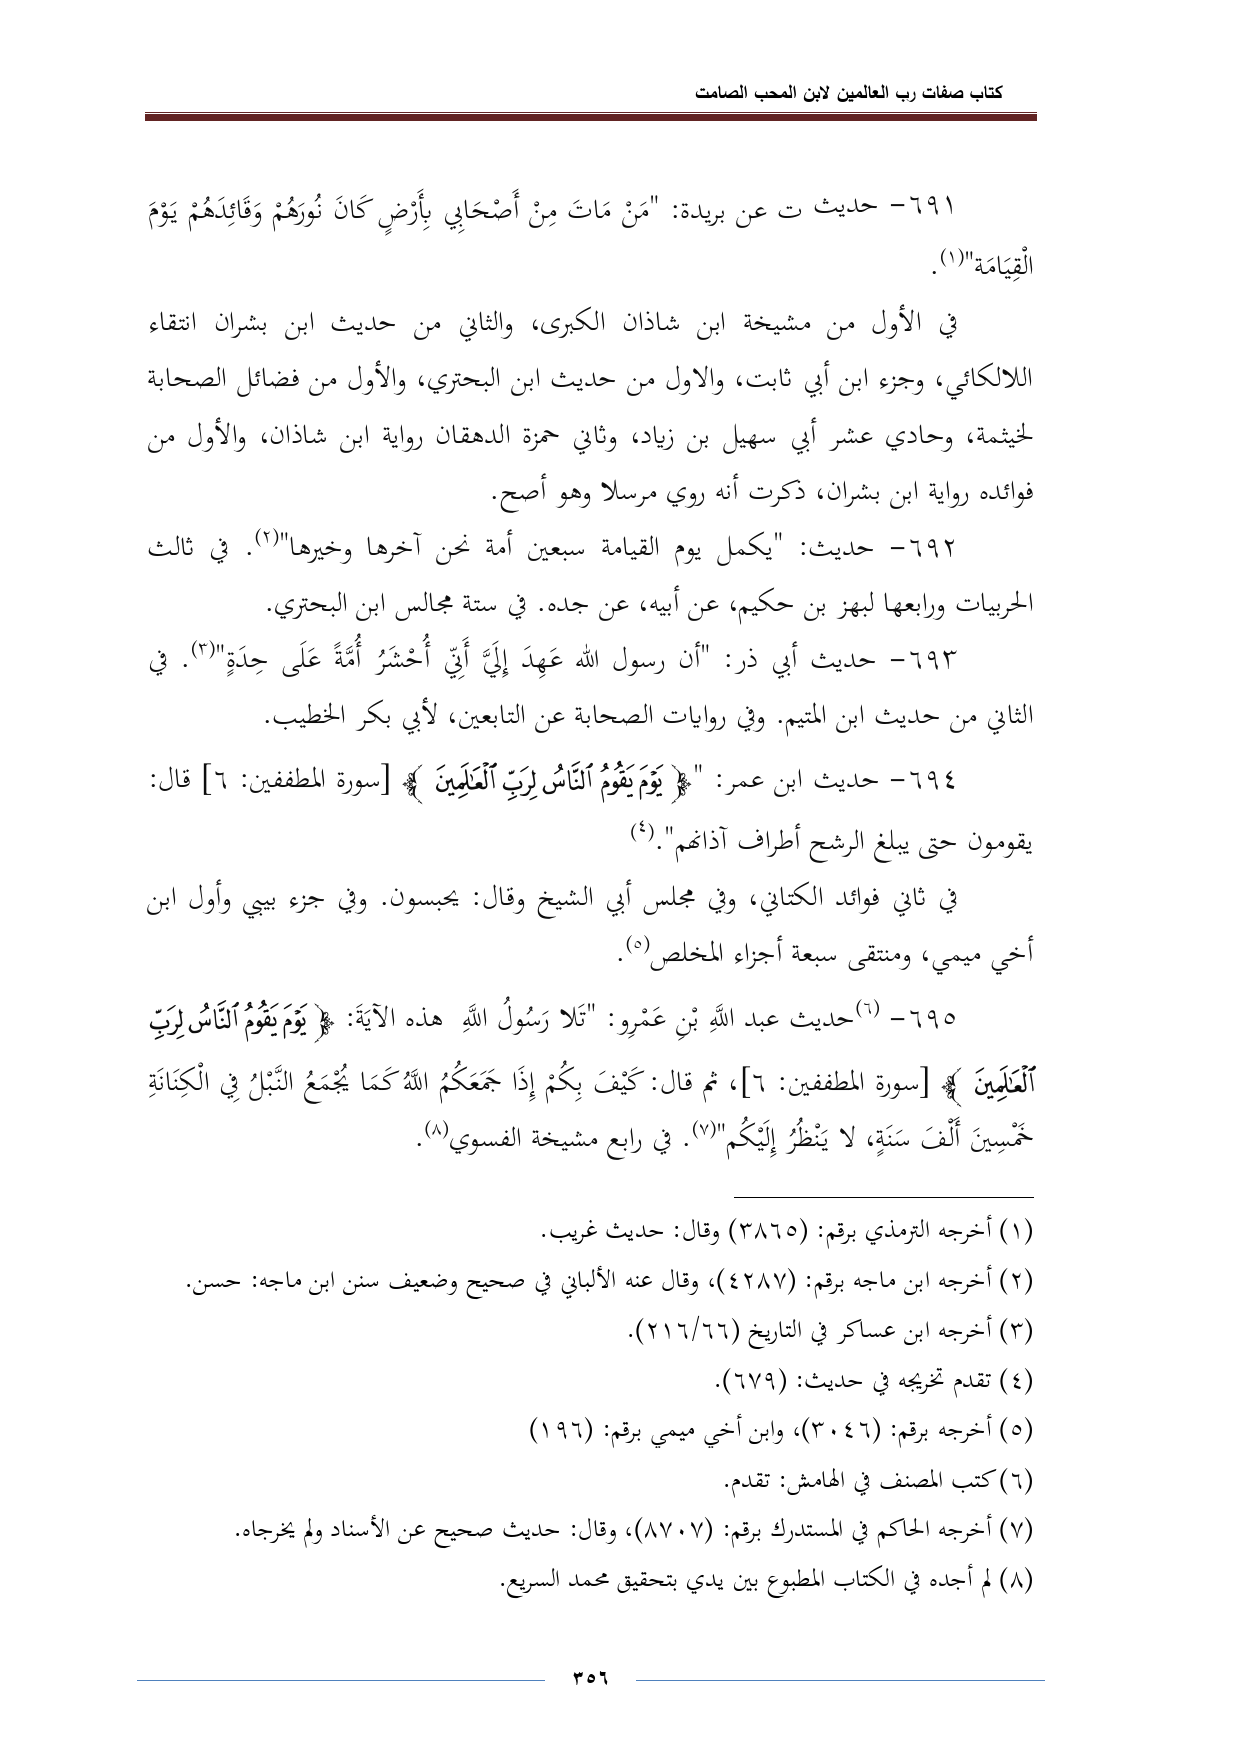 كتاب صفات رب العالمين لابن المحب الصامت
٦٩١- حديث ت عن بريدة: "مَنْ مَاتَ مِنْ أَصْحَابِي بِأَرْضٍ كَانَ نُورَهُمْ وَقَائِدَهُمْ يَوْمَ
الْقِيَامَة"(١).
في الأول من مشيخة ابن شاذان الكبرى، والثاني من حديث ابن بشران انتقاء
اللالكائي، وجزء ابن أبي ثابت، والاول من حديث ابن البحتري، والأول من فضائل الصحابة
لخيثمة، وحادي عشر أبي سهيل بن زياد، وثاني حمزة الدهقان رواية ابن شاذان، والأول من
فوائده رواية ابن بشران، ذكرت أنه روي مرسلا وهو أصح.
٦٩٢- حديث: "يكمل يوم القيامة سبعين أمة نحن آخرها وخيرها"(٢). في ثالث
الحربيات ورابعها لبهز بن حكيم، عن أبيه، عن جده. في ستة مجالس ابن البحتري.
٦٩٣- حديث أبي ذر: "أن رسول الله عَهِدَ إِلَيَّ أَنِّي أُحْشَرُ أُمَّةً عَلَى حِدَةٍ"(٣). في
الثاني من حديث ابن المتيم. وفي روايات الصحابة عن التابعين، لأبي بكر الخطيب.
٦٩٤- حديث ابن عمر: "﴿ يَوْمَ يَقُومُ ٱلنَّاسُ لِرَبِّ ٱلْعَٰلَمِينَ ﴾ [سورة المطففين: ٦] قال:
يقومون حتى يبلغ الرشح أطراف آذانهم".(٤)
في ثاني فوائد الكتاني، وفي مجلس أبي الشيخ وقال: يحبسون. وفي جزء بيبي وأول ابن
أخي ميمي، ومنتقى سبعة أجزاء المخلص(٥).
٦٩٥- (٦)حديث عبد اللَّهِ بْنِ عَمْرِو: "تَلا رَسُولُ اللَّهِ هذه الآيَةَ: ﴿ يَوْمَ يَقُومُ ٱلنَّاسُ لِرَبِّ
ٱلْعَٰلَمِينَ ﴾ [سورة المطففين: ٦]، ثم قال: كَيْفَ بِكُمْ إِذَا جَمَعَكُمُ اللَّهُ كَمَا يُجْمَعُ النَّبْلُ فِي الْكِنَانَةِ
خَمْسِينَ أَلْفَ سَنَةٍ، لا يَنْظُرُ إِلَيْكُم"(٧). في رابع مشيخة الفسوي(٨).
(١) أخرجه الترمذي برقم: (٣٨٦٥) وقال: حديث غريب.
(٢) أخرجه ابن ماجه برقم: (٤٢٨٧)، وقال عنه الألباني في صحيح وضعيف سنن ابن ماجه: حسن.
(٣) أخرجه ابن عساكر في التاريخ (٢١٦/٦٦).
(٤) تقدم تخريجه في حديث: (٦٧٩).
(٥) أخرجه برقم: (٣٠٤٦)، وابن أخي ميمي برقم: (١٩٦)
(٦) كتب المصنف في الهامش: تقدم.
(٧) أخرجه الحاكم في المستدرك برقم: (٨٧٠٧)، وقال: حديث صحيح عن الأسناد ولم يخرجاه.
(٨) لم أجده في الكتاب المطبوع بين يدي بتحقيق محمد السريع.
٣٥٦